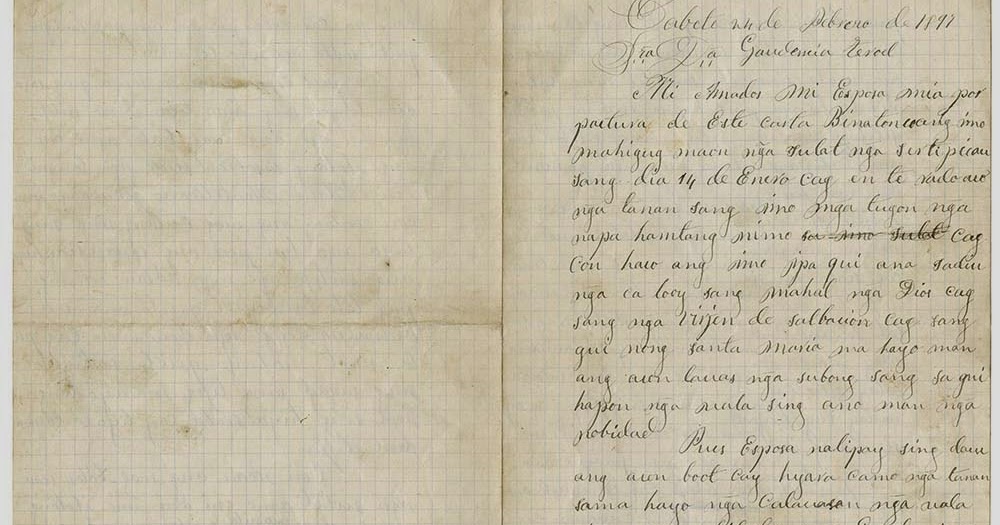 Cabete 24 de Febrero de 1897
Sra Da Gaudencia
Mi Amados Mi Esposa mia por
paetura de Este carta Binaton co ang imo
mahigug maon nga sulat nga sirtipicau
sang dia 14 de Enero cag en te rado aco
nga tanan sang imo mga tugon nga
napa hamtang nimo sa imo sulat cag
Con haco ang imo ipa qui ana sadiu
nga ca looy sang mahal nga Dios cag
sang nga Virjen de salbacion cag sang
gui nong santa Maria ma hayo man
ang acon lauas nga subong sang sa gui
hapon nga uala sing ano man nga
nobidad
Pues Esposa nalipay sing daeu
ang acon boot cay hyara camo nga tanan
sama hayo nga Calauasan nga uala